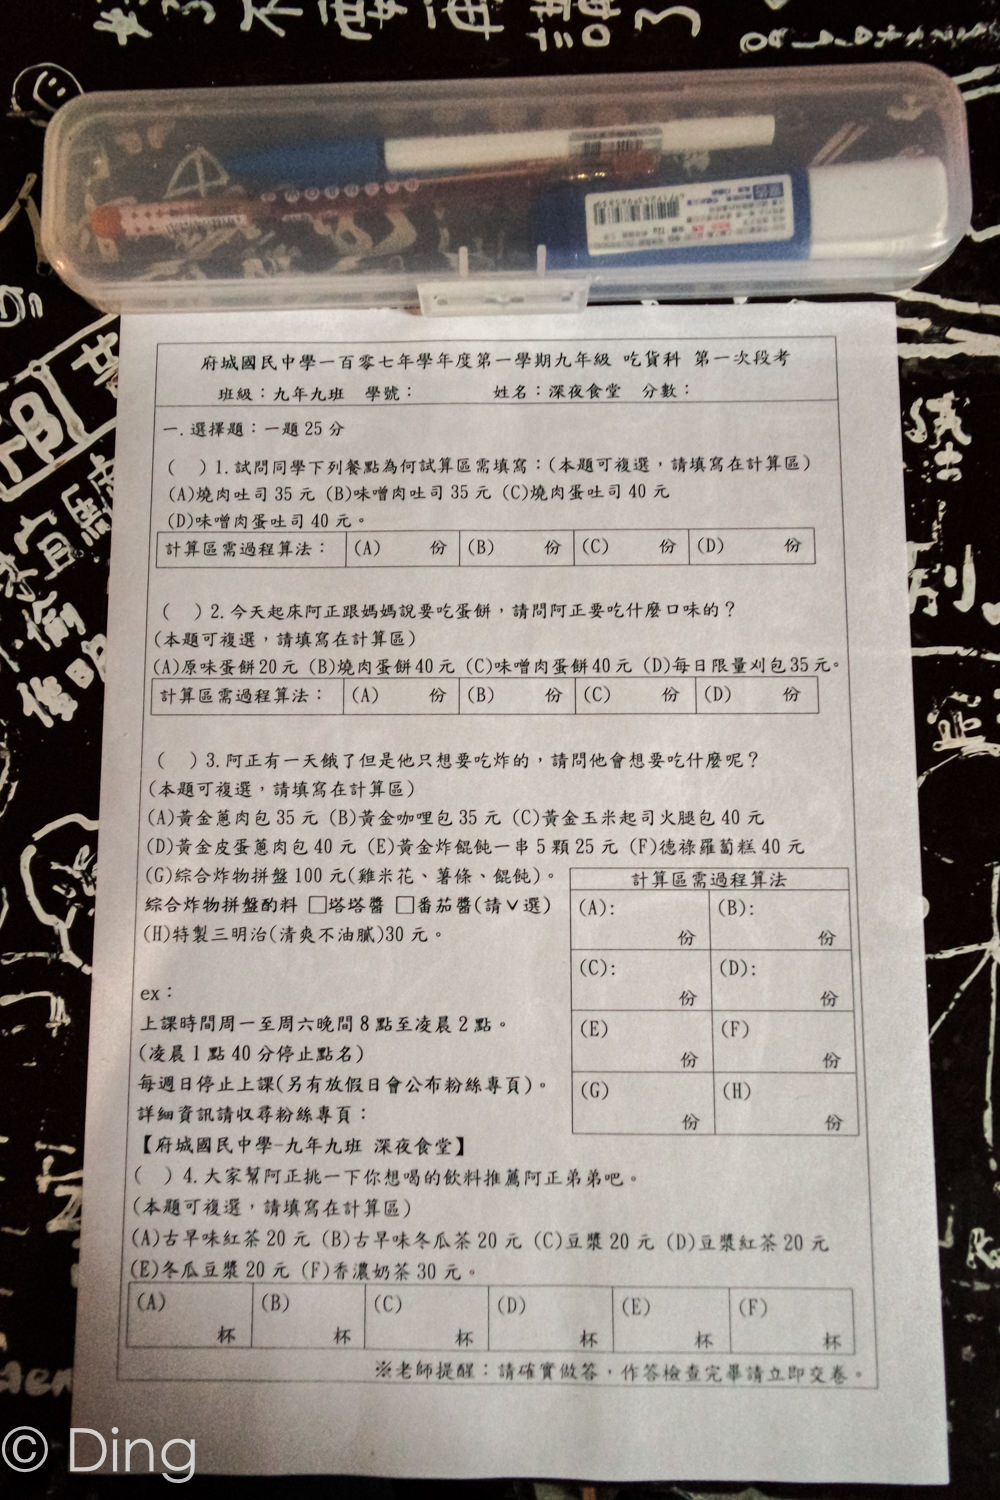 府城國民中學一百零七年學年度第一學期九年級 吃貨科 第一次段考
班級：九年九班 學號： 姓名：深夜食堂 分數：
一.選擇題：一題25分
( )1.試問同學下列餐點為何試算區需填寫：(本題可複選，請填寫在計算區)
(A)燒肉吐司35元 (B)味噌肉吐司35元 (C)燒肉蛋吐司40元
(D)味噌肉蛋吐司40元。
計算區需過程算法： (A) 份 (B) 份 (C) 份 (D) 份
( )2.今天起床阿正跟媽媽說要吃蛋餅，請問阿正要吃什麼口味的？
(本題可複選，請填寫在計算區)
(A)原味蛋餅20元 (B)燒肉蛋餅40元 (C)味噌肉蛋餅40元 (D)每日限量刈包35元。
計算區需過程算法： (A) 份 (B) 份 (C) 份 (D) 份
( )3.阿正有一天餓了但是他只想要吃炸的，請問他會想要吃什麼呢？
(本題可複選，請填寫在計算區)
(A)黃金蔥肉包35元 (B)黃金咖哩包35元 (C)黃金玉米起司火腿包40元
(D)黃金皮蛋蔥肉包40元 (E)黃金炸餛飩一串5顆25元 (F)德祿羅蔔糕40元
(G)綜合炸物拼盤100元(雞米花、薯條、餛飩)。
綜合炸物拼盤酌料 □塔塔醬 □番茄醬(請∨選)
(H)特製三明治(清爽不油膩)30元。
計算區需過程算法
(A): 份 (B): 份
(C): 份 (D): 份
(E) 份 (F) 份
(G) 份 (H) 份
ex：
上課時間周一至周六晚間8點至凌晨2點。
(凌晨1點40分停止點名)
每週日停止上課(另有放假日會公布粉絲專頁)。
詳細資訊請収尋粉絲專頁：
【府城國民中學-九年九班 深夜食堂】
( )4.大家幫阿正挑一下你想喝的飲料推薦阿正弟弟吧。
(本題可複選，請填寫在計算區)
(A)古早味紅茶20元 (B)古早味冬瓜茶20元 (C)豆漿20元 (D)豆漿紅茶20元
(E)冬瓜豆漿20元 (F)香濃奶茶30元。
(A) 杯 (B) 杯 (C) 杯 (D) 杯 (E) 杯 (F) 杯
※老師提醒：請確實做答，作答檢查完畢請立即交卷。
© Ding